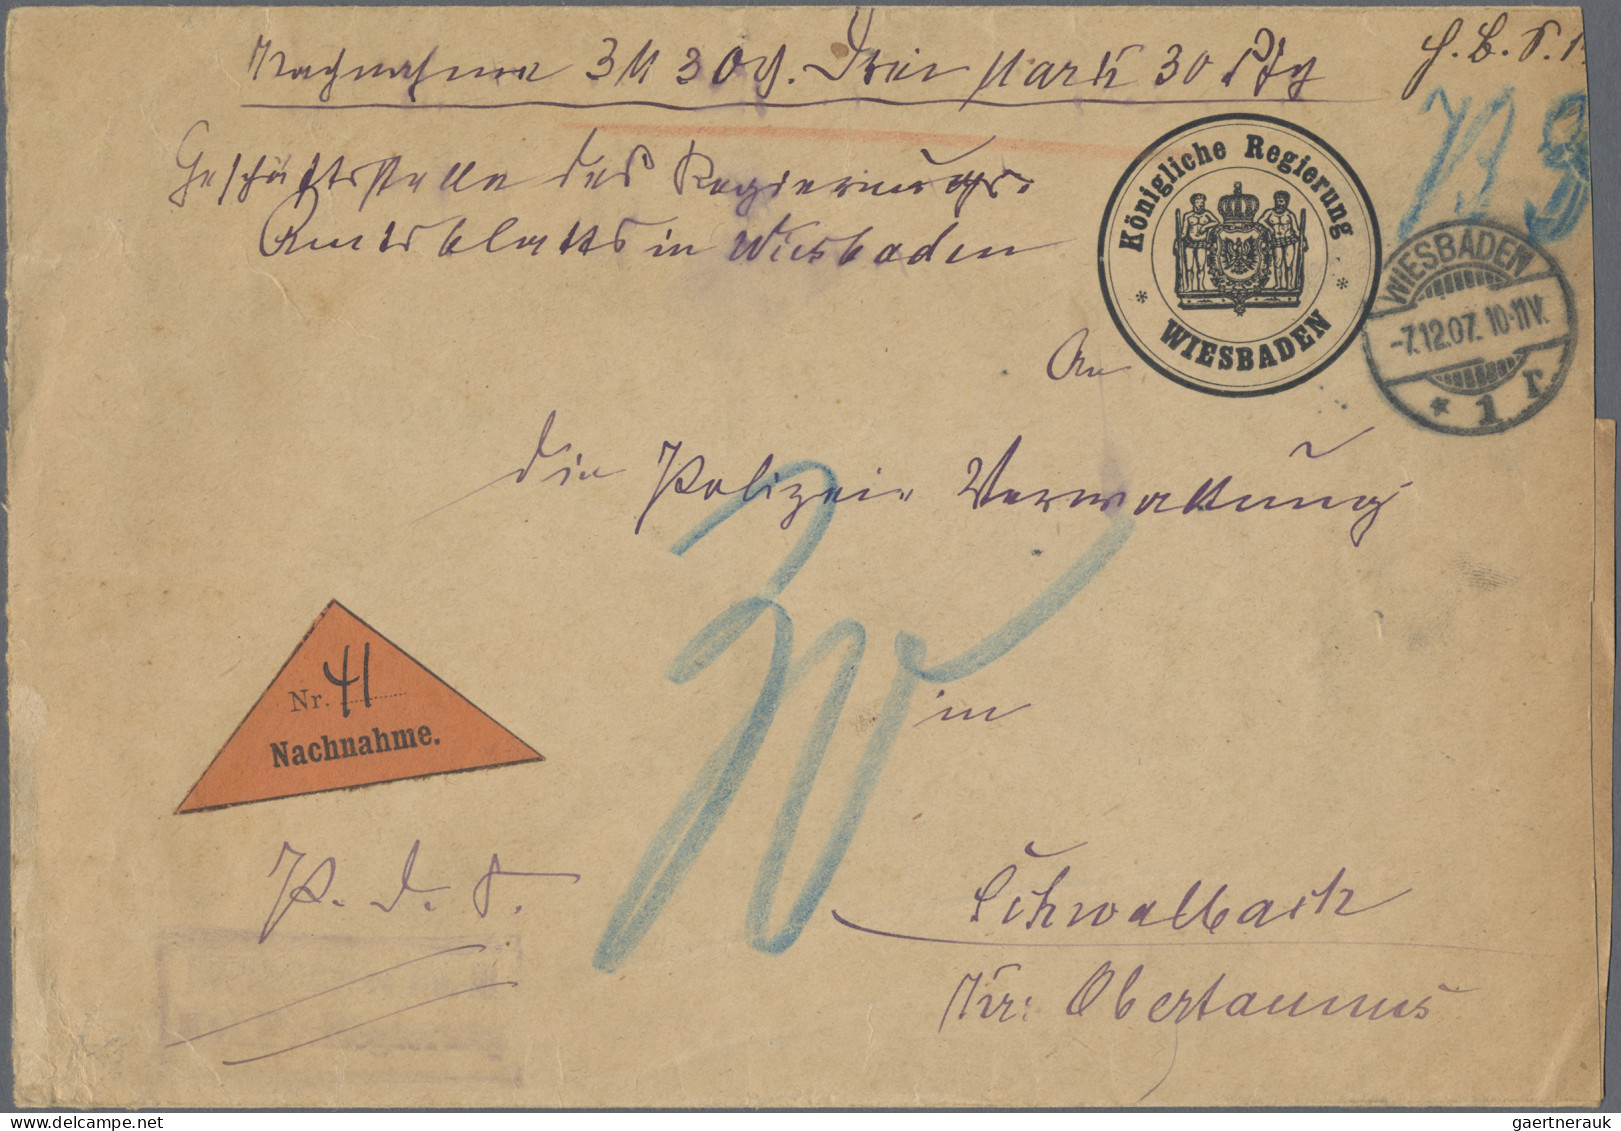 Nachnahme 3 M 30 ₰. Drei Mark 30 Pfg
Geschäftsstelle des Regierungs-
Amtsblatts in Wiesbaden
Königliche Regierung
* WIESBADEN *
WIESBADEN
-7.12.07. 10-11V.
* 1 r.
An
die Polizei-Verwaltung
in
Schwalbach
Kr: Obertaunus
Nr. 41
Nachnahme.
P. d. S.
gaertnerauk @ delcampe.net